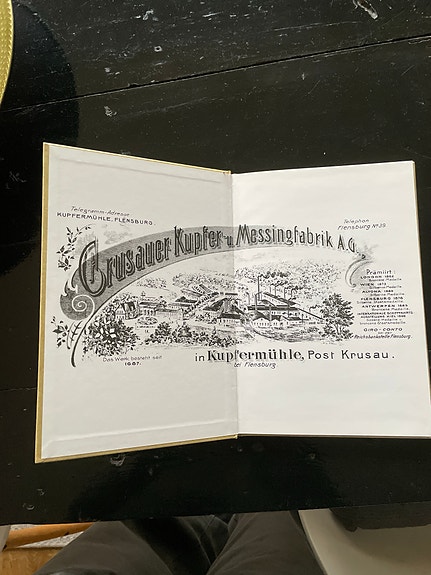 Telegramm-Adresse
KUPFERMÜHLE, FLENSBURG.
Telephon
Flensburg No 39
Crusauer Kupfer u. Messingfabrik A.G.,
Prämiirt:
LONDON 1862
WIEN 1873
ALTONA 1869
FLENSBURG 1878
ANTWERPEN 1885
GIRO-CONTO
Reichsbankstelle Flensburg.
Das Werk besteht seit
in Kupfermühle, Post Krusau.
bei Flensburg.